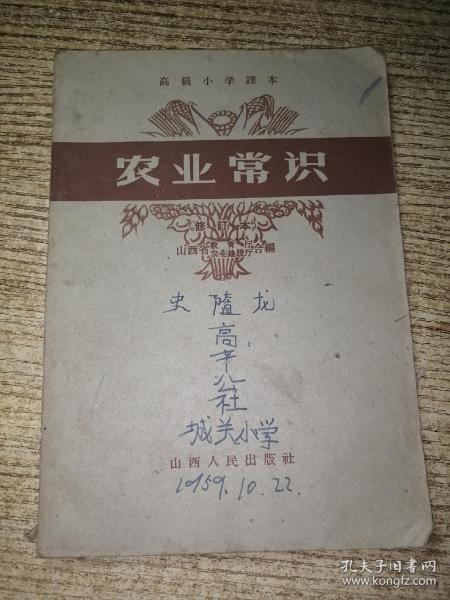 高級小学課本
农业常识
(修訂本)
山西省教育厅农业建設厅合編
史 龙
高平公社
城关小学
山西人民出版社
1959.10.22.
孔夫子旧书网
www.kongfz.com